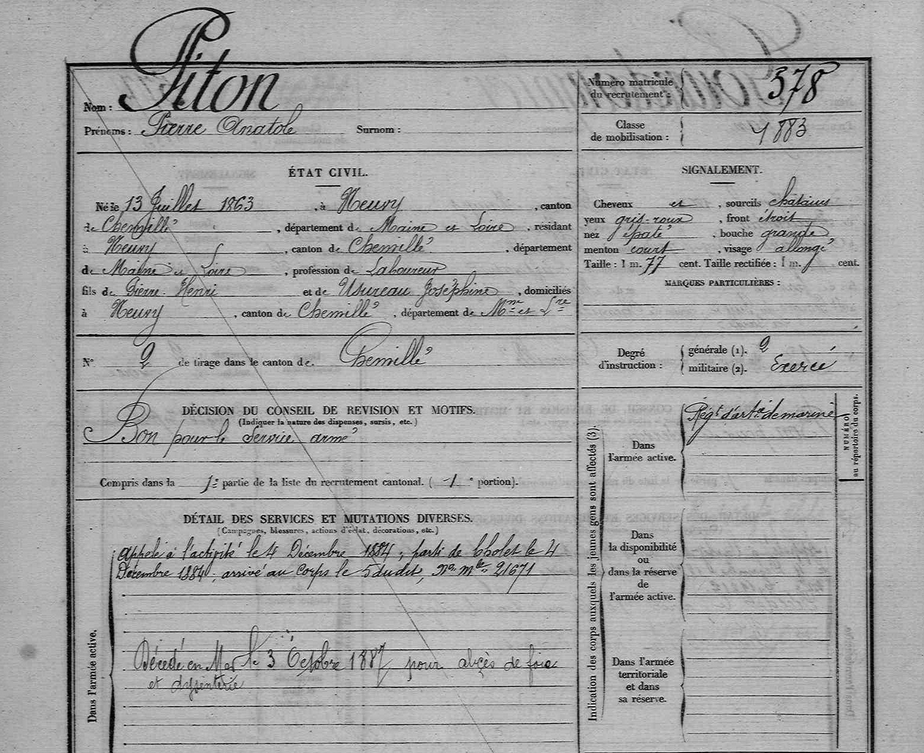 Piton
Nom :
Prénoms : Pierre Anatole Surnom :
Numéro matricule
du recrutement : 378
Classe
de mobilisation : 1883
ÉTAT CIVIL.
Né le 13 Juillet 1863, à Neuvy, canton
de Chemillé, département de Maine et Loire, résidant
à Neuvy, canton de Chemillé, département
de Maine et Loire, profession de Laboureur
fils de Pierre Henri et de Usureau Joséphine, domiciliés
à Neuvy, canton de Chemillé, département de Mne et Lre
SIGNALEMENT.
Cheveux et sourcils châtains
yeux gris-roux, front étroit
nez épaté, bouche grande
menton court, visage allongé
Taille : 1 m. 77 cent. Taille rectifiée : 1 m. cent.
MARQUES PARTICULIÈRES :
N° 2 de tirage dans le canton de Chemillé
Degré
d'instruction :
générale (1). 2
militaire (2). Exercé
DÉCISION DU CONSEIL DE REVISION ET MOTIFS.
(Indiquer la nature des dispenses, sursis, etc.)
Bon pour le service armé
Compris dans la 1e partie de la liste du recrutement cantonal. ( 1 e portion).
DÉTAIL DES SERVICES ET MUTATIONS DIVERSES.
(Campagnes, blessures, actions d'éclat, décorations, etc.)
Dans l'armée active.
Appelé à l'activité le 4 Décembre 1884, parti de Cholet le 4
Décembre 1884, arrivé au corps le 5 dudit, No Mle 21671
Décédé en Mer le 3 Octobre 1887 pour abcès de foie
et dyssenterie
Indication des corps auxquels les jeunes gens sont affectés (3).
Dans
l'armée active.
Régt d'artie de marine
NUMÉRO
au répertoire du corps.
Dans
la disponibilité
ou
dans la réserve
de
l'armée active.
Dans l'armée
territoriale
et dans
sa réserve.